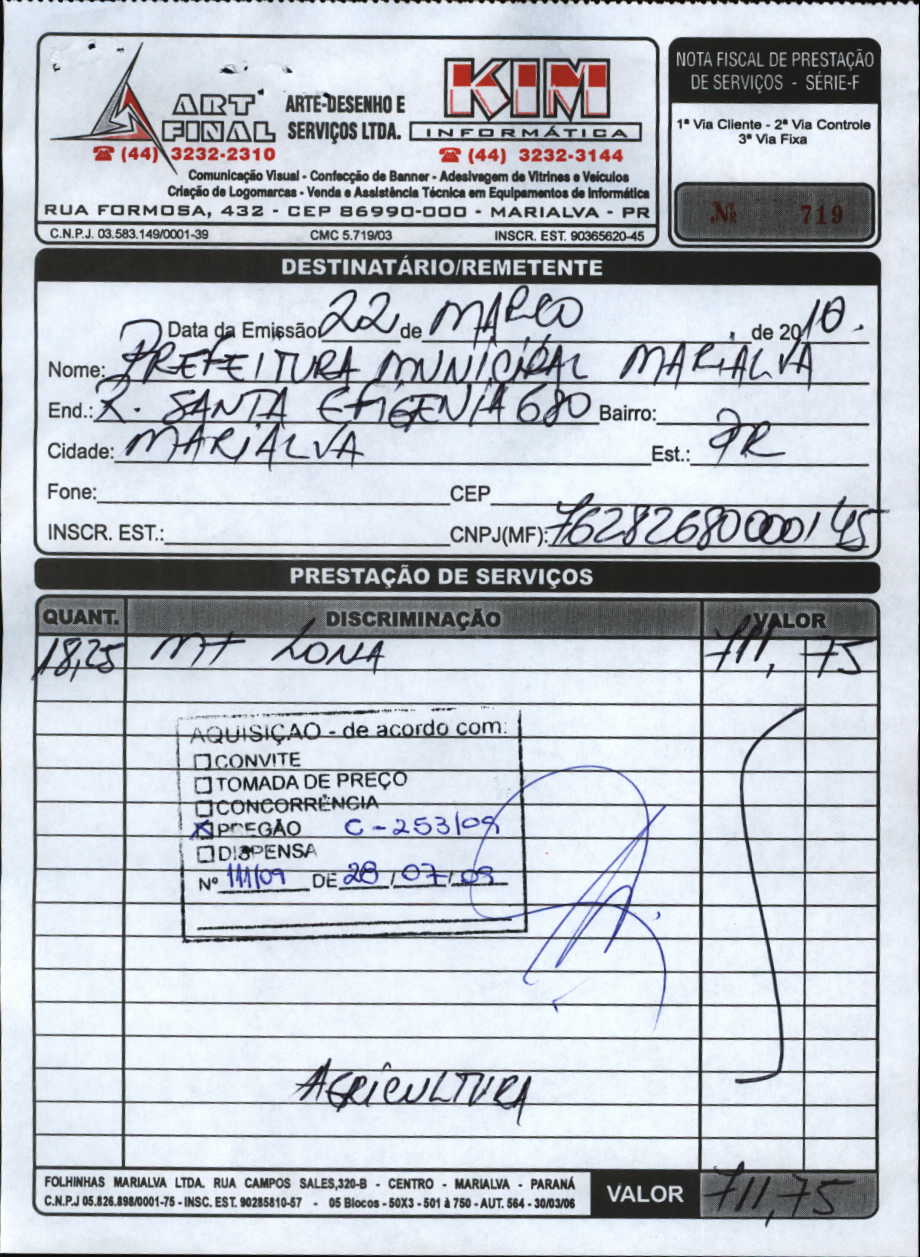 ART FINAL
ARTE-DESENHO E SERVIÇOS LTDA.
KIM INFORMÁTICA
(44) 3232-2310
(44) 3232-3144
Comunicação Visual - Confecção de Banner - Adesivagem de Vitrines e Veículos
Criação de Logomarcas - Venda e Assistência Técnica em Equipamentos de Informática
RUA FORMOSA, 432 - CEP 86990-000 - MARIALVA - PR
C.N.P.J. 03.583.149/0001-39 CMC 5.719/03 INSCR. EST. 90365620-45
NOTA FISCAL DE PRESTAÇÃO
DE SERVIÇOS - SÉRIE-F
1ª Via Cliente - 2ª Via Controle
3ª Via Fixa
Nº 719
DESTINATÁRIO/REMETENTE
Data da Emissão 22 de MARCO de 2010.
Nome: PREFEITURA MUNICIPAL MARIALVA
End.: R. SANTA EFIGENIA 680 Bairro:
Cidade: MARIALVA Est.: PR
Fone: CEP
INSCR. EST.: CNPJ(MF): 76282680000145
PRESTAÇÃO DE SERVIÇOS
QUANT. DISCRIMINAÇÃO VALOR
18,25 MT LONA 711,75
AQUISIÇÃO - de acordo com:
CONVITE
TOMADA DE PREÇO
CONCORRÊNCIA
X PREGÃO C-253/09
DISPENSA
Nº 111/09 DE 28 / 07 / 09
AGRICULTURA
FOLHINHAS MARIALVA LTDA. RUA CAMPOS SALES,320-B - CENTRO - MARIALVA - PARANÁ
C.N.P.J 05.826.898/0001-75 - INSC. EST. 90285810-67 - 05 Blocos - 50X3 - 501 à 750 - AUT. 564 - 30/03/06
VALOR 711,75